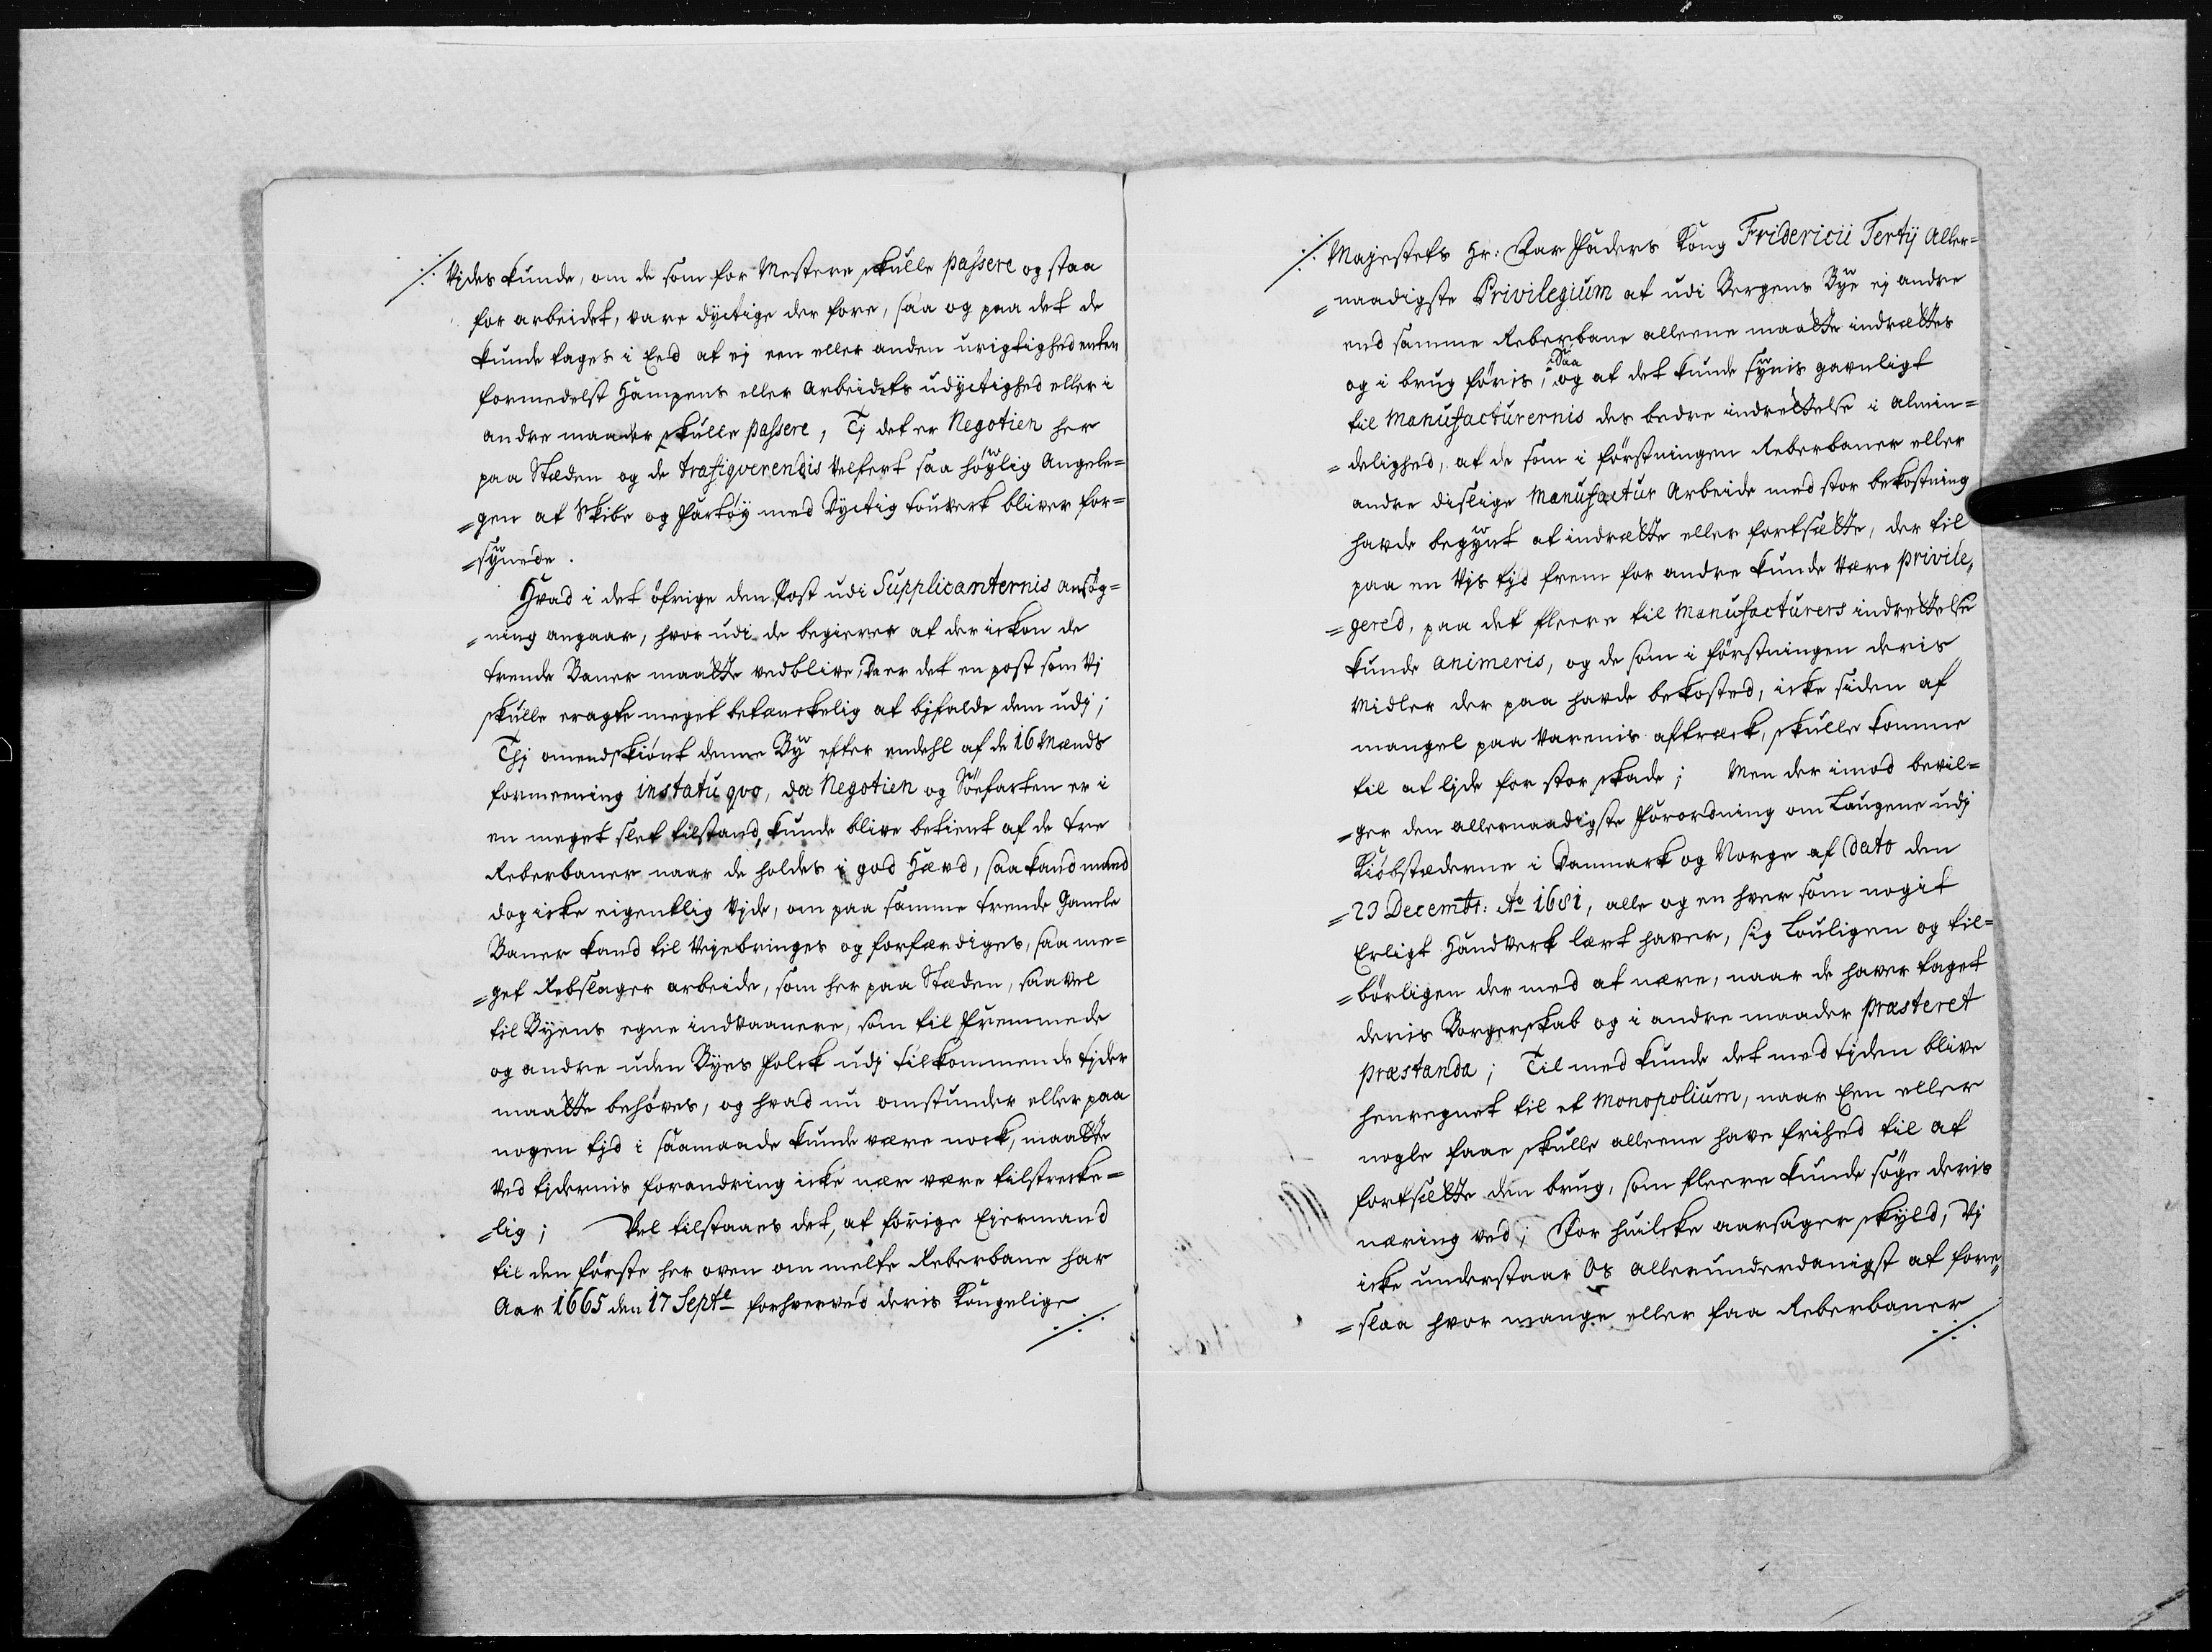 ./. Vides kunde, om de som for Mestere skulle passere og staa
for arbeidet, vare dyctige der fore, saa og paa det de
kunde tages i Eed at ej een eller anden urigtighed enten
formedelst Hampens eller Arbeidets udyctighed eller i
andre maader skulle passere, Tj det er Negotien her
paa Stæden og de trafiqverendis Velfert saa höylig Angele=
=gen at Skibe og Fartöy med Dyctig touverk bliver for=
=synede.
Hvad i det öfrige den Post udi Supplicanternis ansög=
=ning angaar, hvor udi de begierer at der ickon de
trende Baner maatte vedblive, Da er det en post som Vj
skulle eragte meget betænckelig at bjfalde dem udj;
Thj omendskiönt denne By efter endehl af de 16 Mænds
formeening instatu qvo, da Negotien og Söefarten er i
en meget slet tilstand, kunde blive betient af de tre
Reberbaner naar de holdes i god Hævd, saa kand mand
dog icke eigentlig Vide, om paa samme trende Gamle
Baner kand til Vejebringes og forfærdiges, saa me=
=get Rebslager arbeide, som her paa Stæden, saavel
til Byens egne indvaanere, som til Fremmede
og andre uden Byes Folck udj tilkommende tjder
maatte behöves, og hvad nu omstunder eller paa
nogen tjd i saamaade kunde være nock, maatte
Ved tjdernis forandring icke nær være tilstrecke=
=lig; Vel tilstaaes det, at forige Eiermand
til den förste her oven om melte Reberbane har
Aar 1665 den 17 Septe forhverved deris Kongelige
./.
./. Majestets Hr: Far Faders Kong Fridericii Tertij Aller=
=naadigste Privilegium at udi Bergens Bye ej andre
end samme Reberbane alleene maatte indrættes
og i brug föris, Saa og at det kunde synis gavnligt
til Manufacturernis des bedre indrettelse i almin=
=delighed, at de som i förstningen Reberbaner eller
andre dislige Manufactur Arbeide med stor bekostning
havde begynt at indrætte eller fortsætte, der til
paa en Vis tjd frem for andre kunde Være privile=
=gered, paa det fleere til Manufacturers indrettelse
kunde animeris, og de som i förstningen deris
Midler der paa havde bekosted, icke siden af
mangel paa Varenis aftræck, skulle komme
til at ljde for stor skade; Men der imod bevil=
=ger den allernaadigste Forordning om Laugene udj
Kiöbstæderne i Danmark og Norge af Dato den
=23 Decembr: Ao 1681, alle og en hver som nogit
Erligt Handverk lært haver, sig Louligen og til=
=börligen der med at nære, naar de haver taget
deris Borgerskab og i andre maader præsteret
præstanda; Til med kunde det med tjden blive
henregnet til et Monopolium, naar Een eller
nogle faae skulle alleene have frihed til at
fortsætte den brug, som fleere kunde söge deris
næring ved; For huilcke aarsager skyld, Vj
icke understaar Os allerunderdanigst at fore=
=slaa hvor mange eller faa Reberbaner
./.